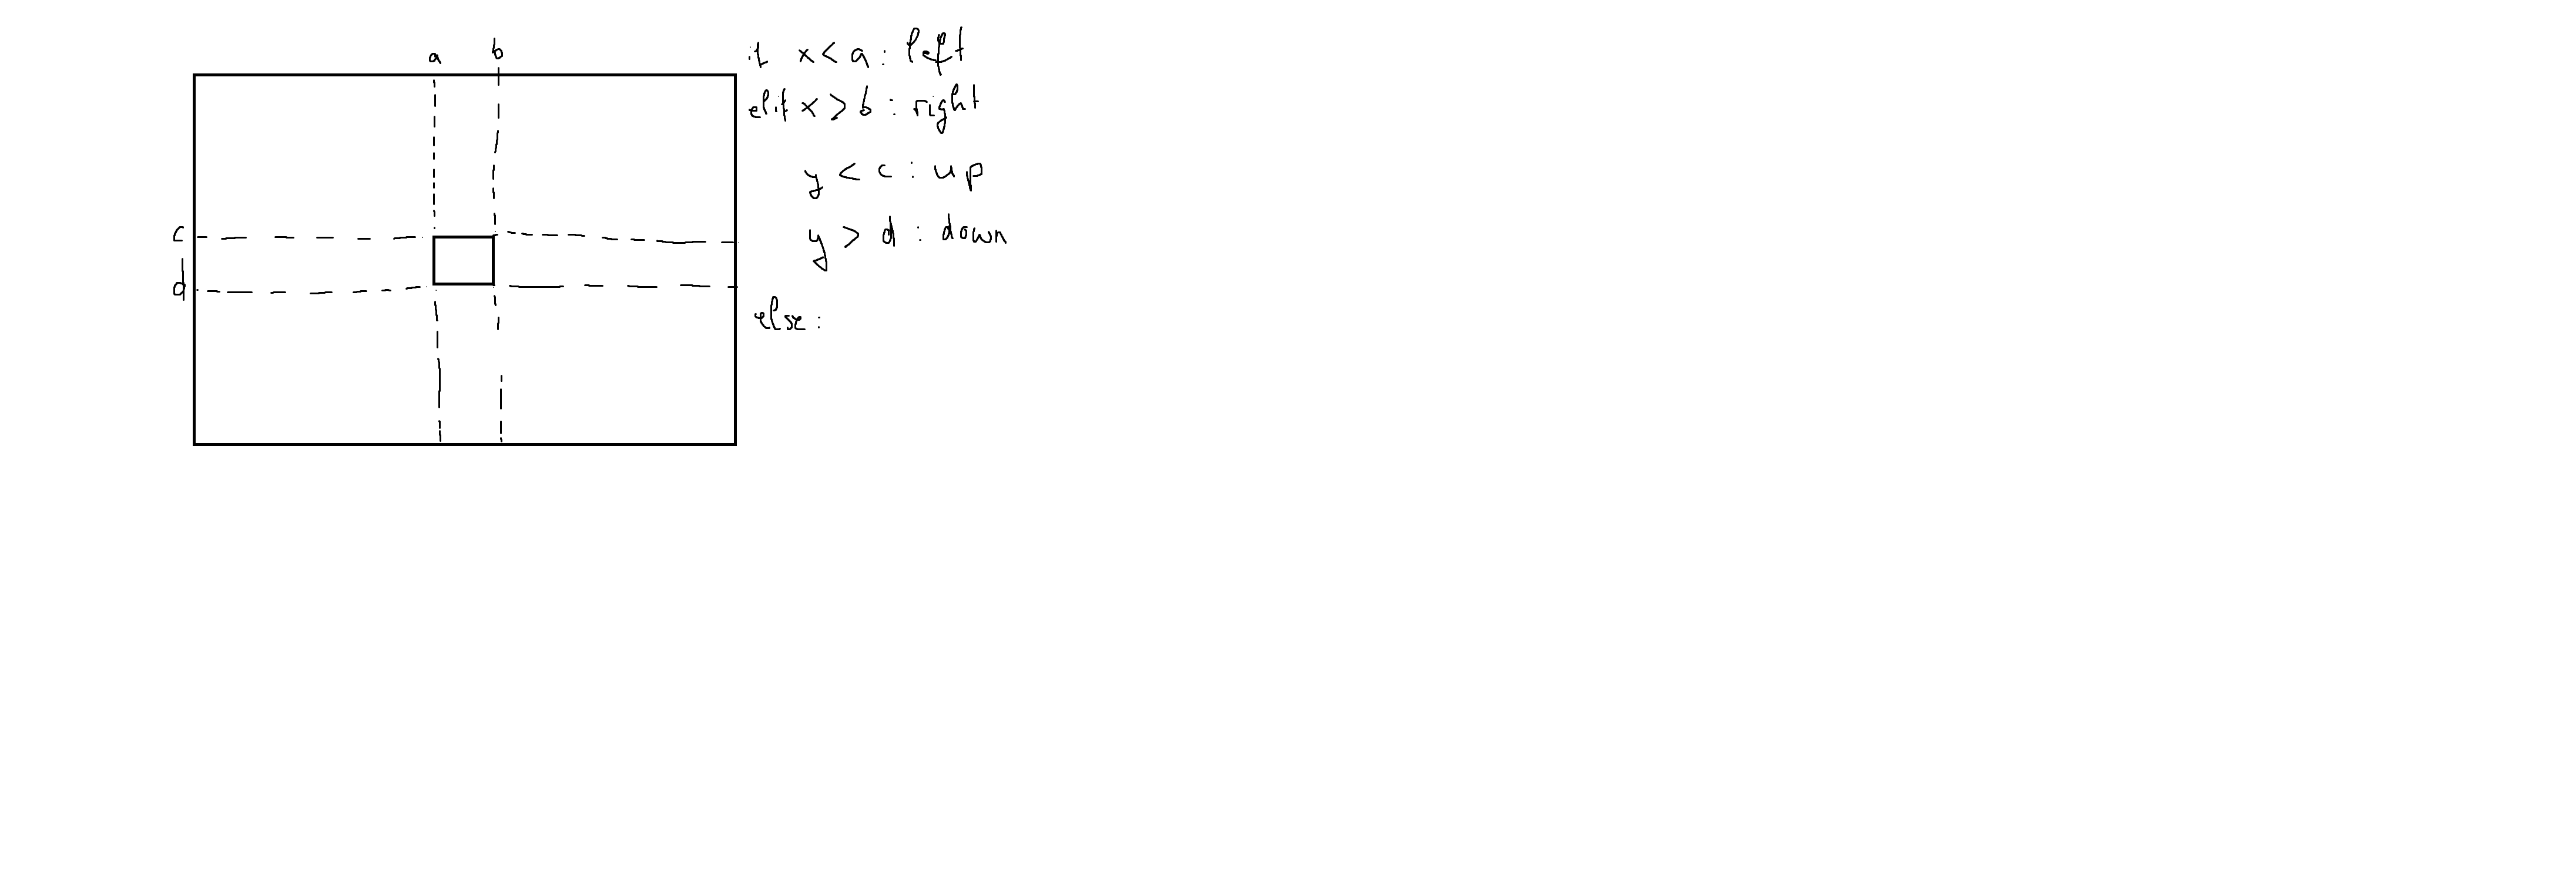 a b
if x < a : left
elif x > b : right
y < c : up
c
y > d : down
d
else :